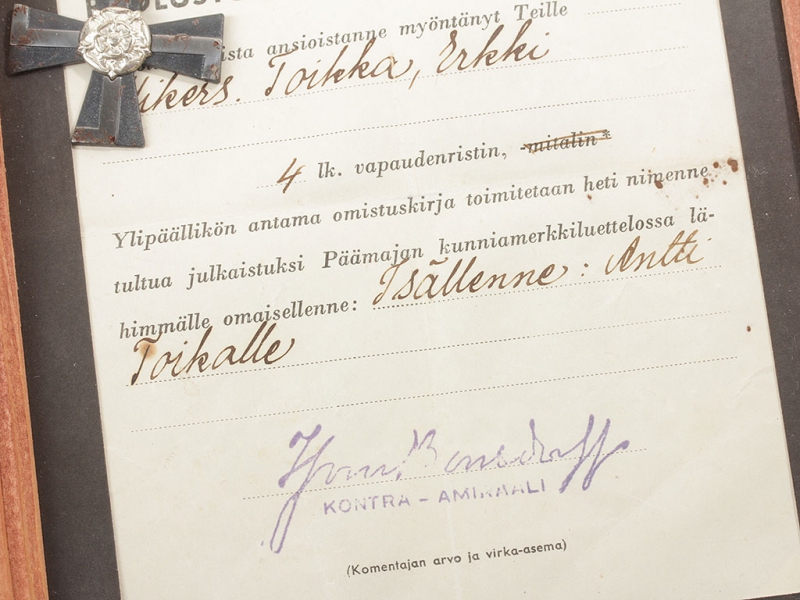 ista ansioistanne myöntänyt Teille
Toikka, Erkki
4 lk. vapaudenristin, mitalin*
Ylipäällikön antama omistuskirja toimitetaan heti nimenne
tultua julkaistuksi Päämajan kunniamerkkiluettelossa lä-
himmälle omaisellenne: Isällenne: Antti
Toikalle
KONTRA-AMIRAALI
(Komentajan arvo ja virka-asema)